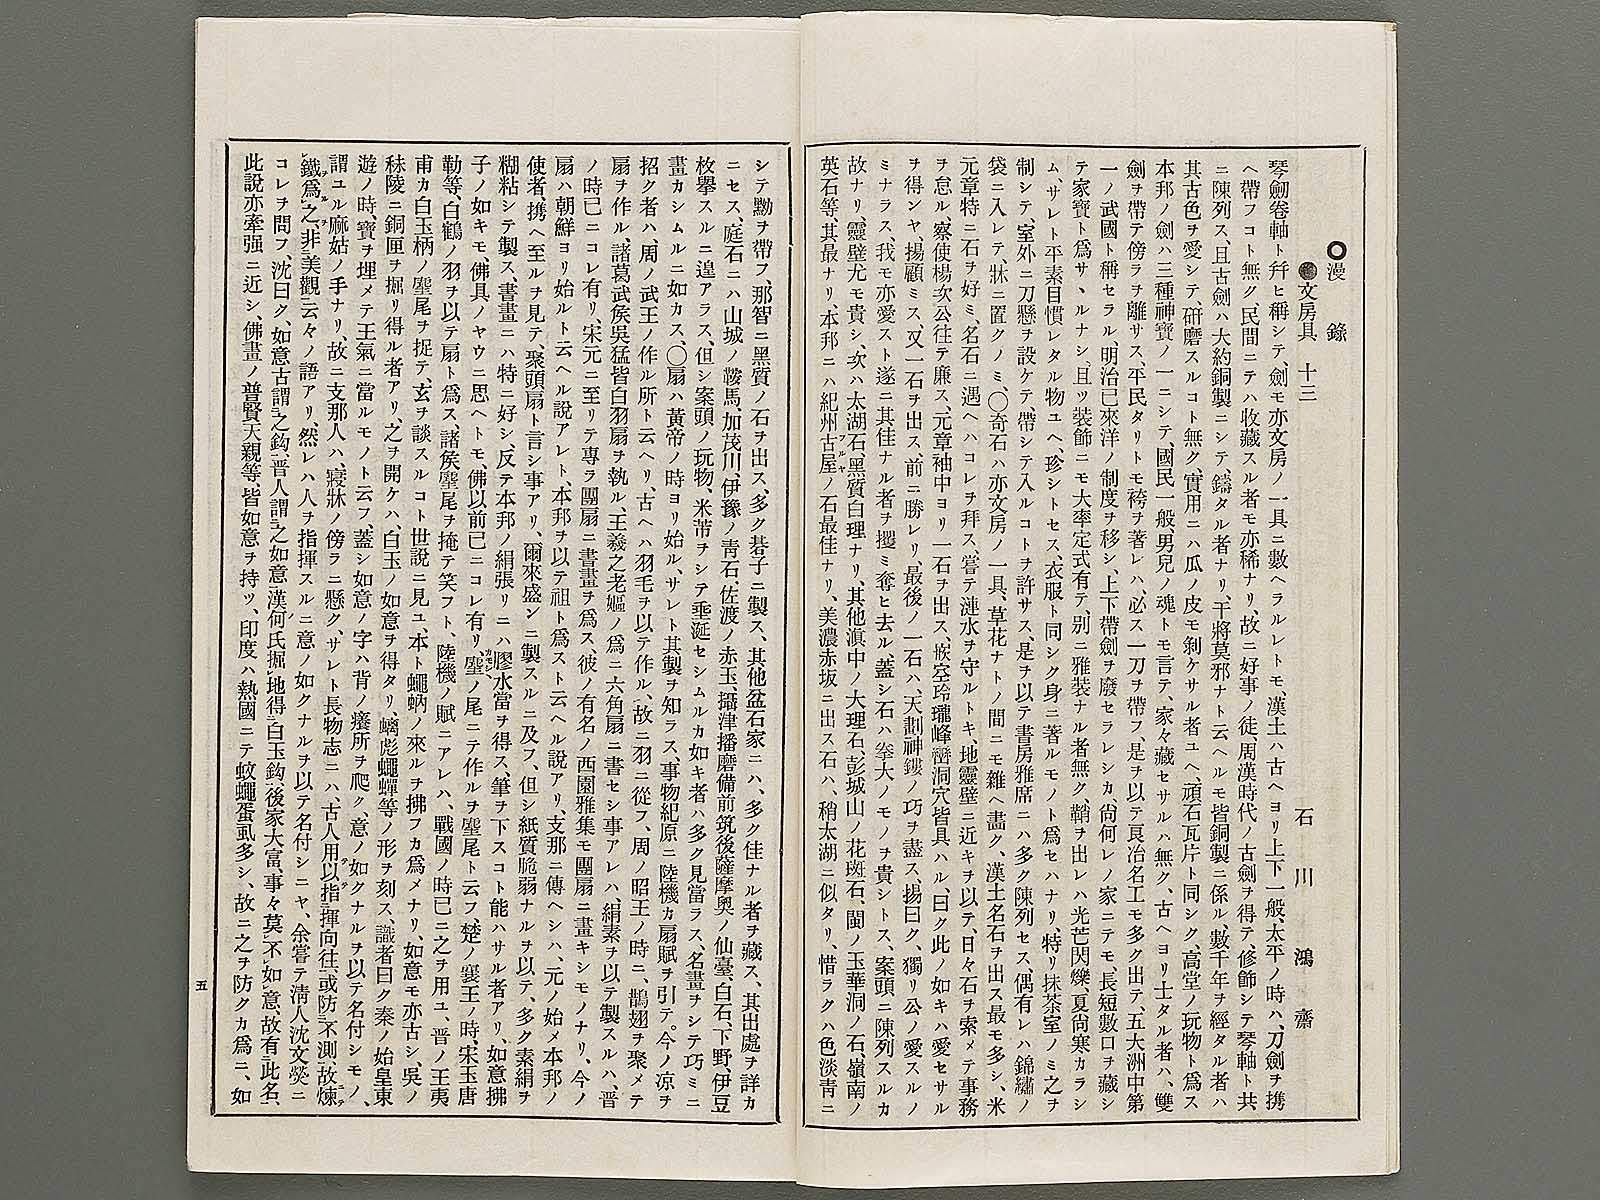 漫錄
文房具 十三 石川鴻齋
琴劒卷軸ト幷ヒ稱シテ、劍モ亦文房ノ一具ニ數ヘラルレトモ、漢土ハ古ヘヨリ上下一般、太平ノ時ハ、刀劍ヲ携
ヘ帶フコト無ク、民間ニテハ收藏スル者モ亦稀ナリ、故ニ好事ノ徒、周漢時代ノ古劍ヲ得テ、修飾シテ琴軸ト共
ニ陳列ス、且古劍ハ大約銅製ニシテ、鑄タル者ナリ、干將莫邪ナト云ヘルモ皆銅製ニ係ル、數千年ヲ經タル者ハ
其古色ヲ愛シテ、研磨スルコト無ク、實用ニハ瓜ノ皮モ剝ケサル者ユヘ、頑石瓦片ト同シク、高堂ノ玩物ト爲ス
本邦ノ劍ハ三種神寶ノ一ニシテ、國民一般男兒ノ魂トモ言テ、家々藏セサルハ無ク、古ヘヨリ士タル者ハ、雙
劍ヲ帶テ傍ラヲ離サス、平民タリトモ袴ヲ著レハ、必ス一刀ヲ帶フ、是ヲ以テ良冶名工モ多ク出テ、五大洲中第
一ノ武國ト稱セラル、明治已來洋ノ制度ヲ移シ、上下帶劍ヲ廢セラレシカ、尙何レノ家ニテモ、長短數口ヲ藏シ
テ家寶ト爲サヽルナシ、且ツ裝飾ニモ大率定式有テ、別ニ雅裝ナル者無ク、鞘ヲ出レハ光芒閃爍、夏尙寒カラシ
ム、サレト平素目慣レタル物ユヘ、珍シトセス、衣服ト同シク身ニ著ルモノト爲セハナリ、特リ抹茶室ノミ之ヲ
制シテ、室外ニ刀懸ヲ設ケテ帶シテ入ルコトヲ許サス、是ヲ以テ書房雅席ニハ多ク陳列セス、偶有レハ錦繡ノ
袋ニ入レテ、牀ニ置クノミ、〇奇石ハ亦文房ノ一具、草花ナトノ間ニモ雜ヘ畵ク、漢土名石ヲ出ス最モ多シ、米
元章特ニ石ヲ好ミ、名石ニ遇ヘハコレヲ拜ス、嘗テ漣水ヲ守ルトキ、地靈壁ニ近キヲ以テ、日々石ヲ索メテ事務
ヲ怠ル、察使楊次公往テ廉ス、元章袖中ヨリ一石ヲ出ス、嵌空玲瓏峰巒洞穴皆具ハル、曰ク此ノ如キハ愛セサル
ヲ得ンヤ、揚顧ミス、又一石ヲ出ス、前ニ勝レリ、最後ノ一石ハ、天劃神鏤ノ巧ヲ盡ス、揚曰ク、獨リ公ノ愛スルノ
ミナラス、我モ亦愛スト遂ニ其佳ナル者ヲ攫ミ奪ヒ去ル、蓋シ石ハ拳大ノモノヲ貴シトス、案頭ニ陳列スルカ
故ナリ、靈壁尤モ貴シ、次ハ太湖石、黑質白理ナリ、其他滇中ノ大理石、彭城山ノ花斑石、閩ノ玉華洞ノ石、嶺南ノ
英石等、其最ナリ、本邦ニハ紀州古屋フルヤノ石最佳ナリ、美濃赤坂ニ出ス石ハ、稍太湖ニ似タリ、惜ラクハ色淡青ニ
シテ黝ヲ帶フ、那智ニ黑質ノ石ヲ出ス、多ク碁子ニ製ス、其他盆石家ニハ、多ク佳ナル者ヲ藏ス、其出處ヲ詳カ
ニセス、庭石ニハ山城ノ鞍馬、加茂川、伊豫ノ青石、佐渡ノ赤玉、攝津播磨備前筑後薩摩奧ノ仙臺、白石、下野、伊豆
枚擧スルニ遑アラス、但シ案頭ノ玩物、米芾ヲシテ垂涎セシムルカ如キ者ハ多ク見當ラス、名畫ヲシテ巧ミニ
畫カシムルニ如カス、〇扇ハ黃帝ノ時ヨリ始ル、サレト其製ヲ知ラス、事物紀原ニ陸機カ扇賦ヲ引テ。今ノ凉ヲ
招ク者ハ周ノ武王ノ作ル所ト云ヘリ、古ヘハ羽毛ヲ以テ作ル、故ニ羽ニ從フ、周ノ昭王ノ時ニ、鵲翅ヲ聚メテ
扇ヲ作ル、諸葛武侯吳猛皆白羽扇ヲ執ル、王羲之老嫗ノ爲ニ六角扇ニ書セシ事アレハ、絹素ヲ以テ製スルハ、晋
ノ時已ニコレ有リ、宋元ニ至リテ專ラ團扇ニ書畫ヲ爲ス、彼ノ有名ノ西園雅集モ團扇ニ畫キシモノナリ、今ノ
扇ハ朝鮮ヨリ始ルト云ヘル說アレト、本邦ヲ以テ祖ト爲スト云ヘル說アリ、支那ニ傳ヘシハ、元ノ始メ本邦ノ
使者携ヘ至ルヲ見テ、聚頭扇ト言シ事アリ、爾來盛ンニ製スルニ及フ、但シ紙質脆弱ナルヲ以テ、多ク素絹ヲ
糊粘シテ製ス、書畫ニハ特ニ好シ、反テ本邦ノ絹張リニハ膠水當ヲ得ス、筆ヲ下スコト能ハサル者アリ、如意拂
子ノ如キモ、佛具ノヤウニ思ヘトモ、佛以前已ニコレ有リ、麈ノ尾ニテ作ルヲ麈尾ト云フ、楚ノ襄王ノ時、宋玉唐
勒等、白鶴ノ羽ヲ以テ扇ト爲ス、諸侯麈尾ヲ掩テ笑フト、陸機ノ賦ニアレハ、戰國ノ時已ニ之ヲ用ユ、晋ノ王夷
甫カ白玉柄ノ麈尾ヲ捉テ、玄ヲ談スルコト世說ニ見ユ、本ト蠅蚋ノ來ルヲ拂フカ爲メナリ、如意モ亦古シ、吳ノ
秣陵ニ銅匣ヲ掘リ得ル者アリ、之ヲ開ケハ、白玉ノ如意ヲ得タリ、螭彪蠅蟬等ノ形ヲ刻ス、識者曰ク秦ノ始皇東
遊ノ時、寶ヲ埋メテ王氣ニ當ルモノト云フ、蓋シ如意ノ字ハ背ノ癢所ヲ爬ク、意ノ如クナルヲ以テ名付シモノ、
謂ユル麻姑ノ手ナリ、故ニ支那人ハ、寢牀ノ傍ラニ懸ク、サレト長物志ニハ、古人用以指揮向往、或防不測、故煉
鐵爲之、非美觀云々ノ語アリ、然レハ人ヲ指揮スルニ意ノ如クナルヲ以テ名付シニヤ、余嘗テ淸人沈文熒ニ
コレヲ問フ、沈曰ク、如意古謂之鈎、晋人謂之如意漢何氏掘地得白玉鈎、後家大富、事々莫不如意、故有此名、
此說亦牽强ニ近シ、佛畫ノ普賢天親等、皆如意ヲ持ツ、印度ハ熱國ニテ蚊蠅蚤虱多シ、故ニ之ヲ防クカ爲ニ、如
五